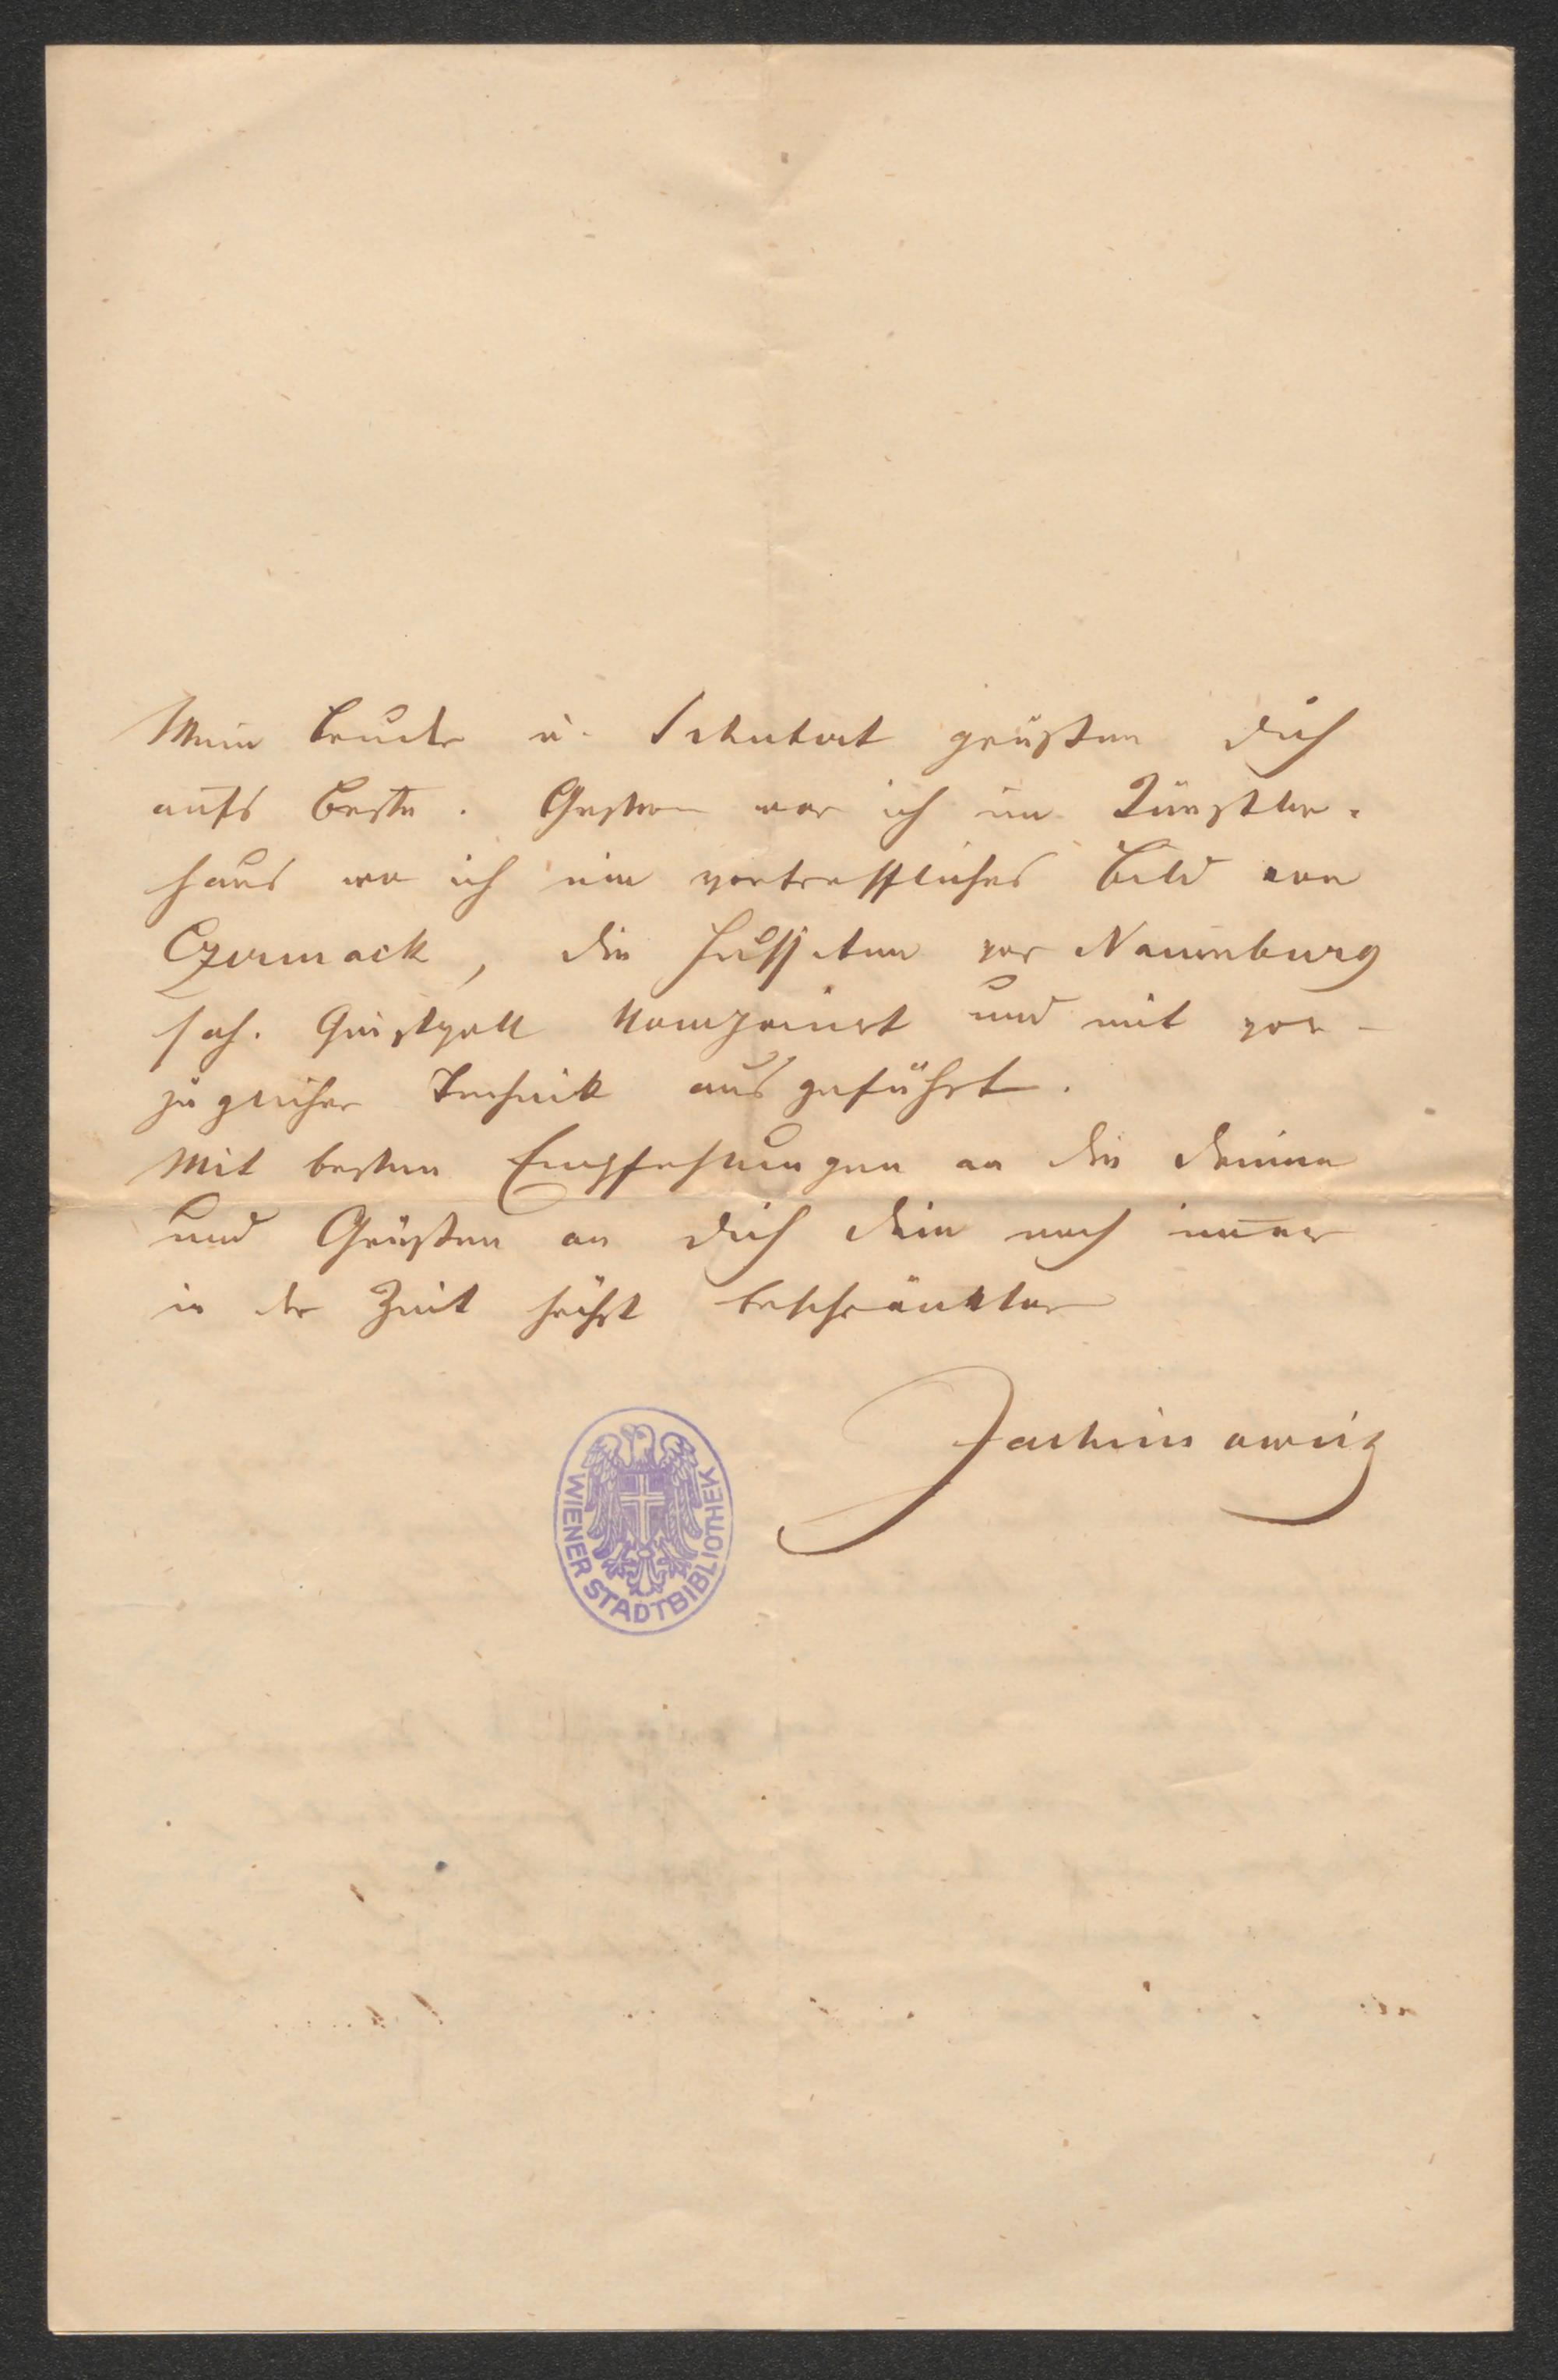 Mein Bruder u. Schubert grüßen Dich
aufs Beste. Gestern war ich im Künstler-
haus wo ich ein vortreffliches Bild von
Czermack, die Hussiten vor Naumburg
sah. Geistvoll komponirt und mit vor-
züglicher Technik ausgeführt.
Mit besten Empfehlungen an die Deinen
und Grüßen an Dich Dein noch immer
in der Zeit höchst beschränkter
WIENER STADTBIBLIOTHEK